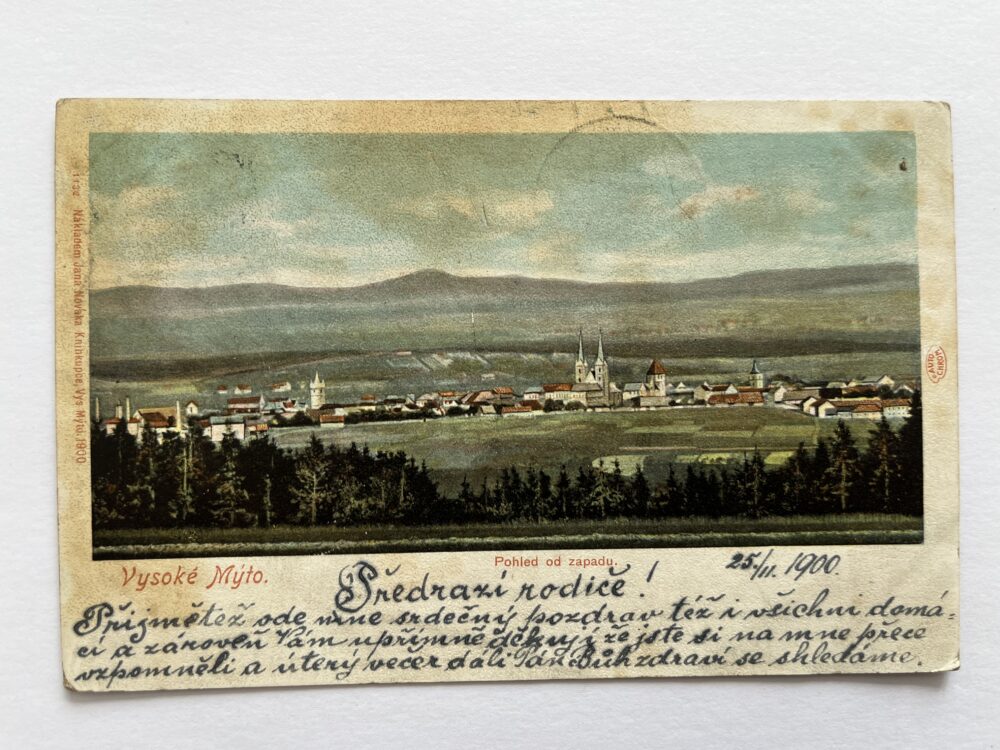 1132 Nákladem Jana Nováka Knihkupce, Vys. Mýto. 1900.
AUTO CHROM
Vysoké Mýto.
Pohled od západu.
25./II. 1900.
Předrazí rodiče!
Přijmětež ode mne srdečný pozdrav též i všichni domá-
cí a zároveň Vám upřímně děkuji že jste si na mne přece
vzpomněli a úterý večer dáli Pán Bůh zdraví se shledáme.